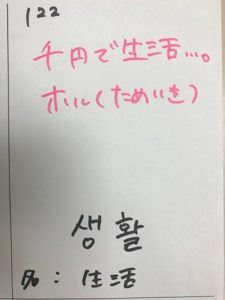 122
千円で生活…。
ホル(ためいき)
생활
名：生活